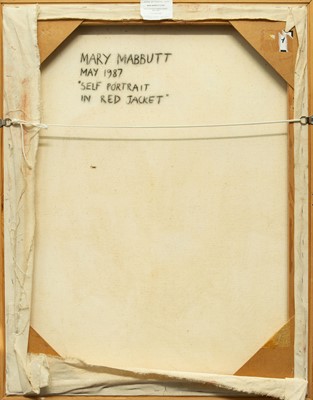 MARY MABBUTT
MAY 1987
"SELF PORTRAIT
IN RED JACKET"